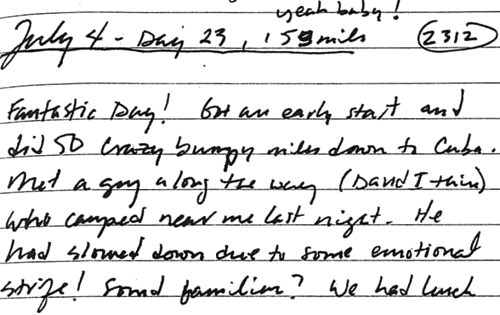 yeah baby!
July 4 - Day 23, 159 miles (2312)
Fantastic Day! Got an early start and
did 50 crazy bumpy miles down to Cuba.
Met a guy along the way (David I think)
who camped near me last night. He
had slowed down due to some emotional
strife! Sound familiar? We had lunch